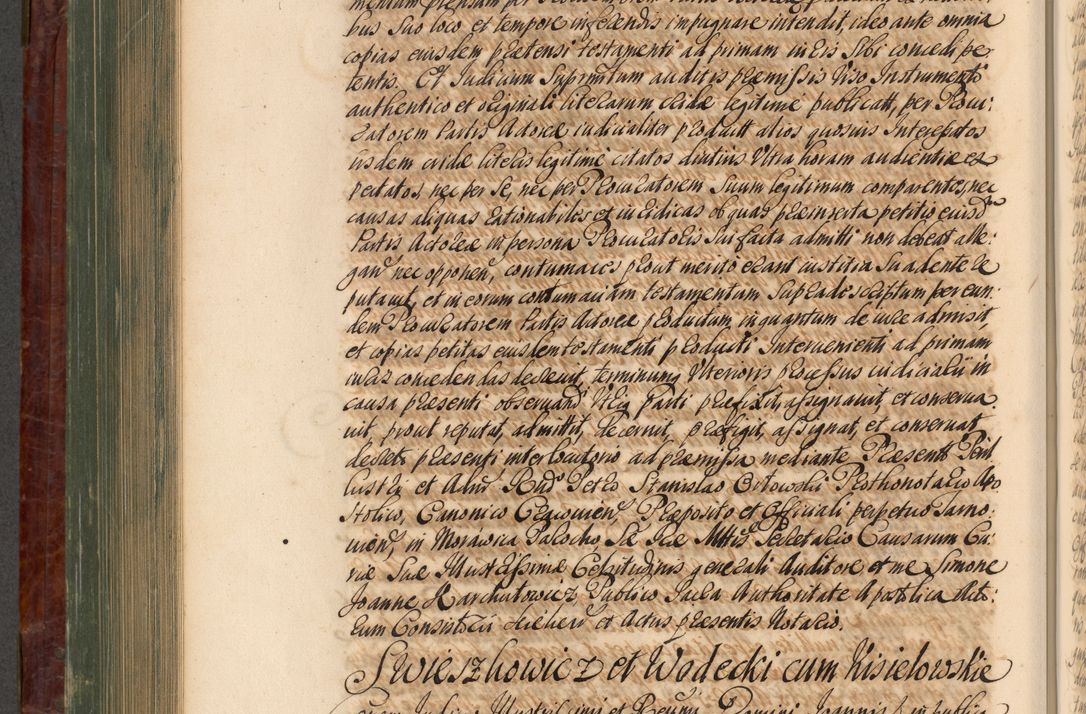 bus suo loco et tempore inferendis impugnare intendit, ideo ante omnia
copias eiusdem prætensi testamenti ad primam iuris sibi concedi pe
tentis. Et Iudicium Suprmitum auditis præmissis viso Instrumento
authentico et originali literarum cridæ legitime publicatt, per Procu:
ratorem Partis Actoreæ iudicialiter productt alios quosuis Interessatos
iisdem cridæ literis legitime citatos diutius Ultra horam audientiæ ex
pectatos, nec per se, nec per Procuratorem Suum legitimum comparentes, nec
causas aliquas rationabiles et iuridicas ob quas præinserta petitio eiusdem
Partis Actoreæ in persona Procuratoris Sui facta admitti non deberet alle:
gan nec opponen, contumaces prout merito erant iustitia Suadente re
putauit, et in eorum contumaciam testamentum Supradescriptum per eun
dem Procuratorem Partis Actoreæ productum, in quantum de iure admisit,
et copias petitas eiusdem testamenti producti Interuenienti ad primam
iuris concedendas decreuit, terminumq Ulterioris processus iudicialii in
causa præsenti obseruand Utriq Parti præfixit, assignauit, et conserua
uit, prout reputat, admittit, decernit, præfigit, assignat, et conseruat
decreto præsenti interlocutorio ad præmissa mediante Præsentt Perill
lustri et Adm Rnd Petro Stanislao Orlowski Prothonotario Apo
stolico, Canonico Cracouien, Præposito et Officiali perpetuo Tarno
uien, in Morawica Parocho, Sæ Ræ Mttis Secretario Causarum Cu
riæ Suæ Illustrissimæ Celsitudinis generali Auditore et me Simone
Joanne Karchutowicz Publico Sacra Authoritate Apostolica Acto:
rum Consistorii et Actus præsentis Notario.
Swieszkowicz et Wodecki cum Kisielowskie